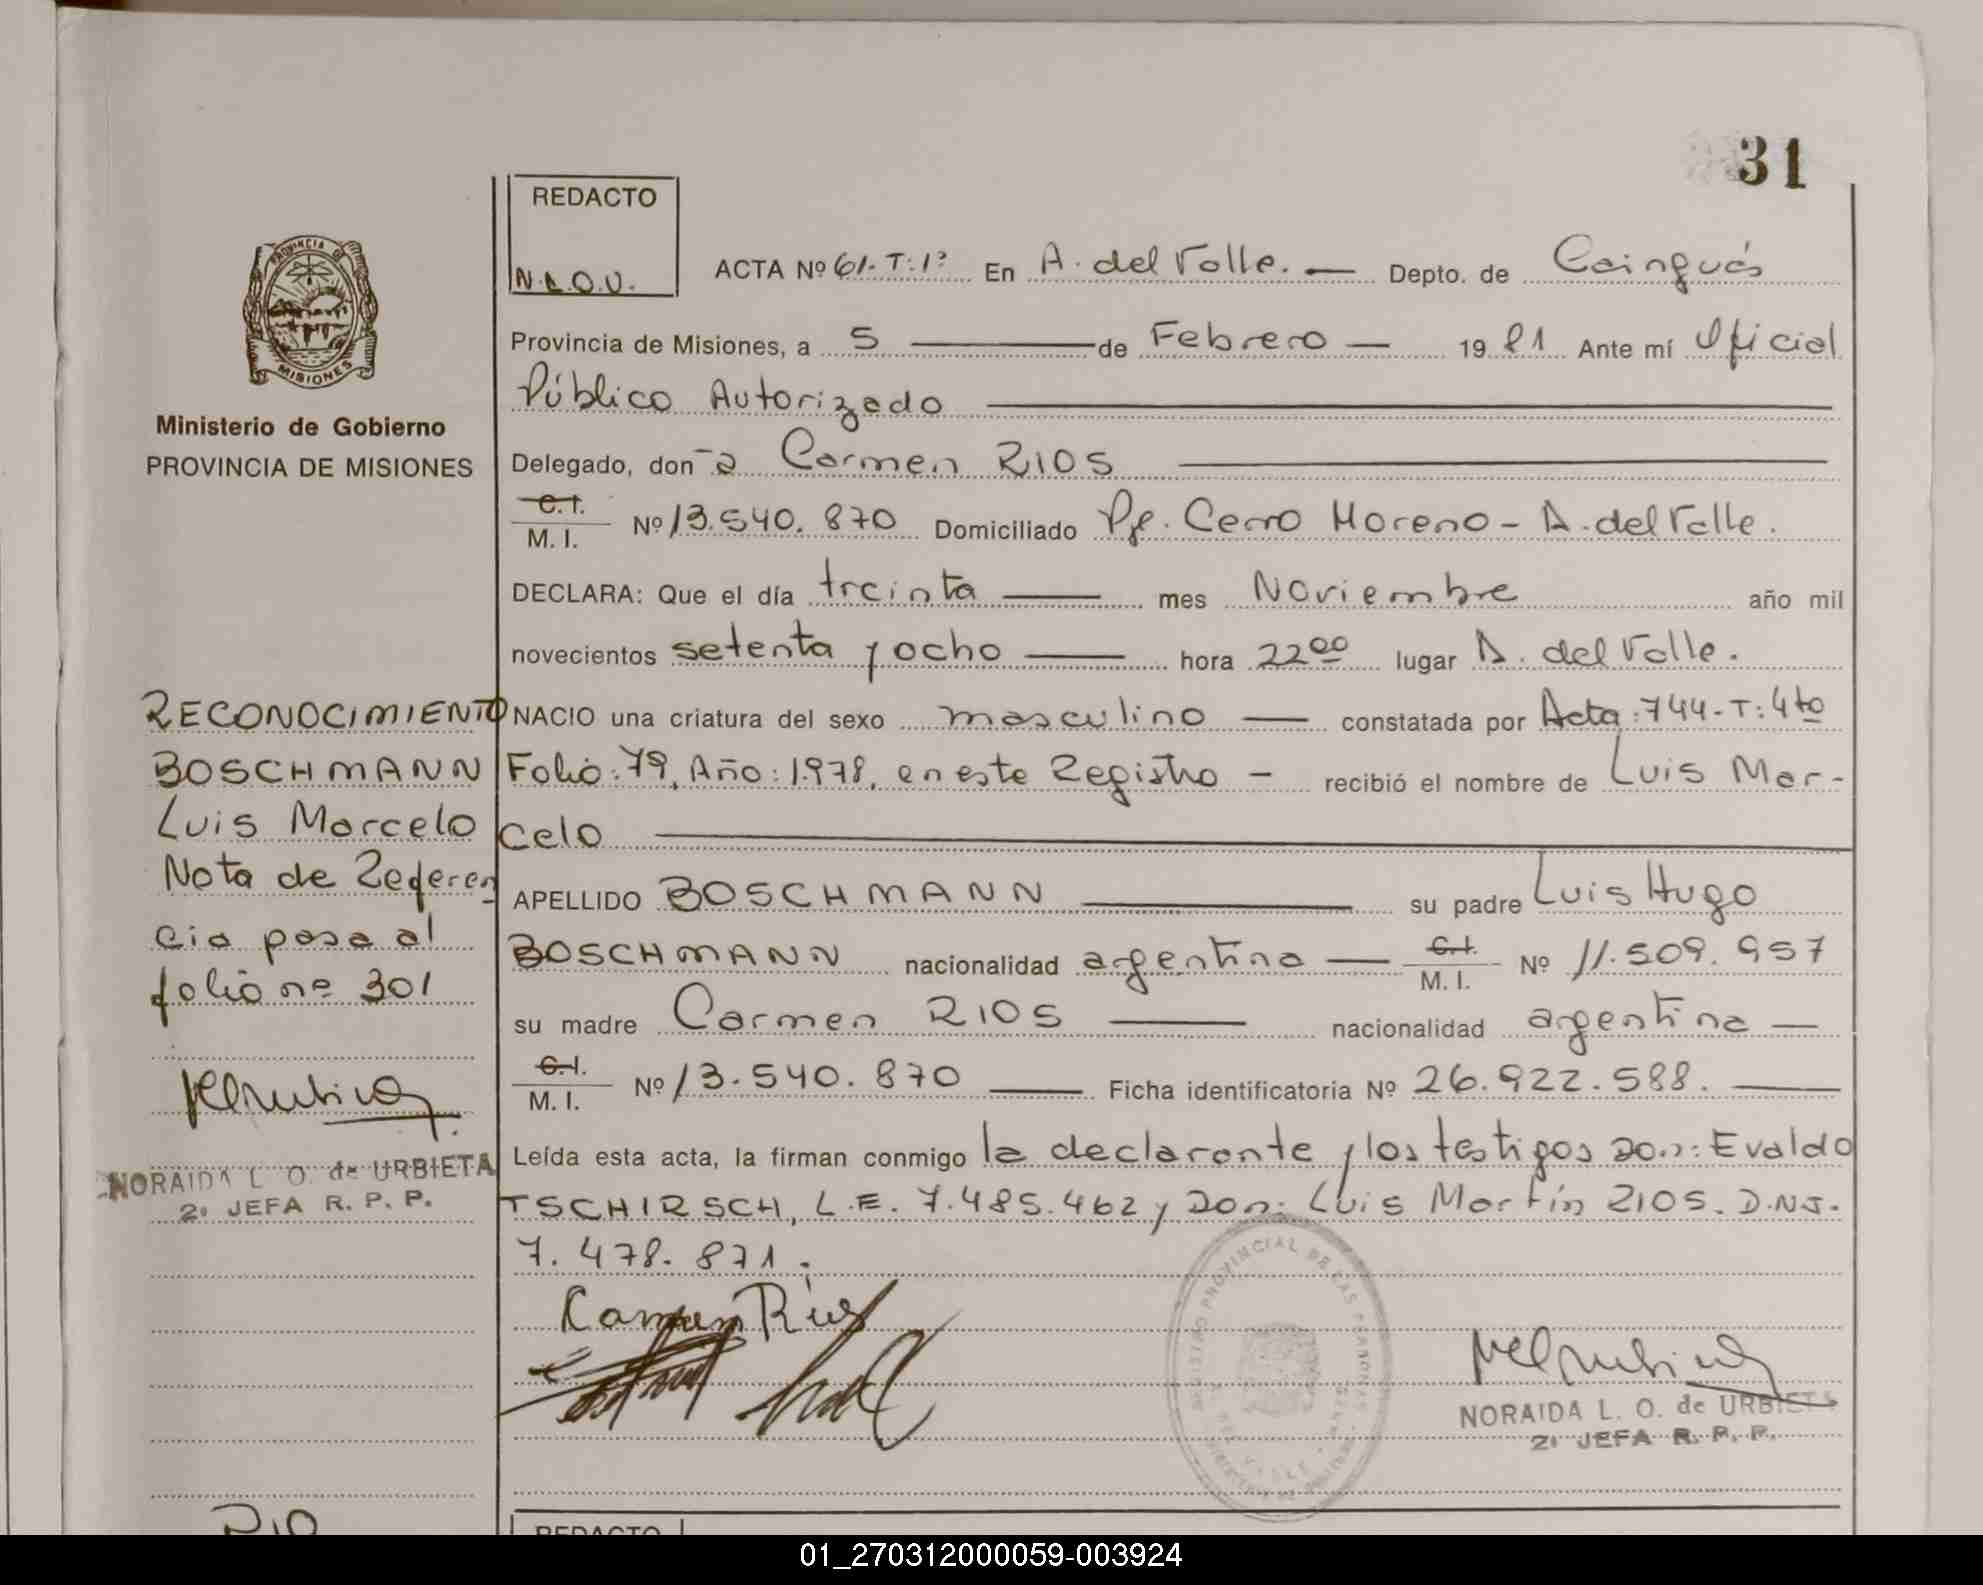 31
REDACTO
N.L.O.U.
PROVINCIA DE
MISIONES
Ministerio de Gobierno
PROVINCIA DE MISIONES
ACTA Nº 61-T:1º En A. del Valle. — Depto. de Cainguás
Provincia de Misiones, a 5 — de Febrero — 1981 Ante mí Oficial
Público Autorizado
Delegado, don-a Carmen RIOS
C.I.
M. I. Nº 13.540.870 Domiciliado Pje. Cerro Moreno - A. del Valle.
DECLARA: Que el día treinta — mes Noviembre año mil
novecientos setenta y ocho — hora 22ºº lugar A. del Valle.
NACIO una criatura del sexo masculino — constatada por Acta: 744-T: 4to
Folio: 79, Año: 1.978, en este Registro — recibió el nombre de Luis Mar-
celo
APELLIDO BOSCHMANN — su padre Luis Hugo
BOSCHMANN nacionalidad argentina — C.I.
M. I. Nº 11.509.957
su madre Carmen RIOS — nacionalidad argentina —
C.I.
M. I. Nº 13.540.870 — Ficha identificatoria Nº 26.922.588. —
Leída esta acta, la firman conmigo la declarante y los testigos Don: Evaldo
TSCHIRSCH, L.E. 7.485.462 y Don: Luis Martín RIOS. D.N.I.
7.478.871.
Carmen Rios
NORAIDA L. O. de URBIETA
2ª JEFA R. P. P.
RECONOCIMIENTO
BOSCHMANN
Luis Marcelo
Nota de Referen
cia pasa al
folio nº 301
NORAIDA L. O. de URBIETA
2ª JEFA R. P. P.
REDACTO
01_270312000059-003924